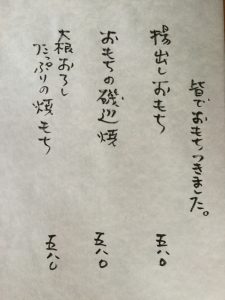 皆でおもちつきました。
揚出しおもち 五八〇
おもちの磯辺焼 五八〇
大根おろし
たっぷりの焼もち 五八〇